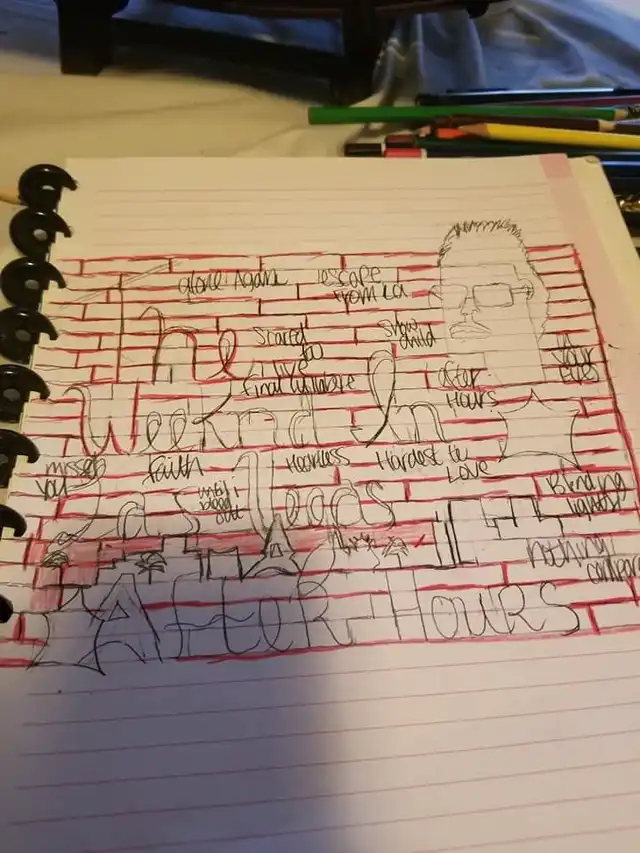 alone Again
escape
from LA
The
scared
to
live
Snow
child
final lullabye
after
Hours
in
your
eyes
Weeknd In
missed
you
Faith
Heartless
Hardest to
Love
until i
bleed
out
Las Vegas
Blinding
lights
nothing
compares
After Hours